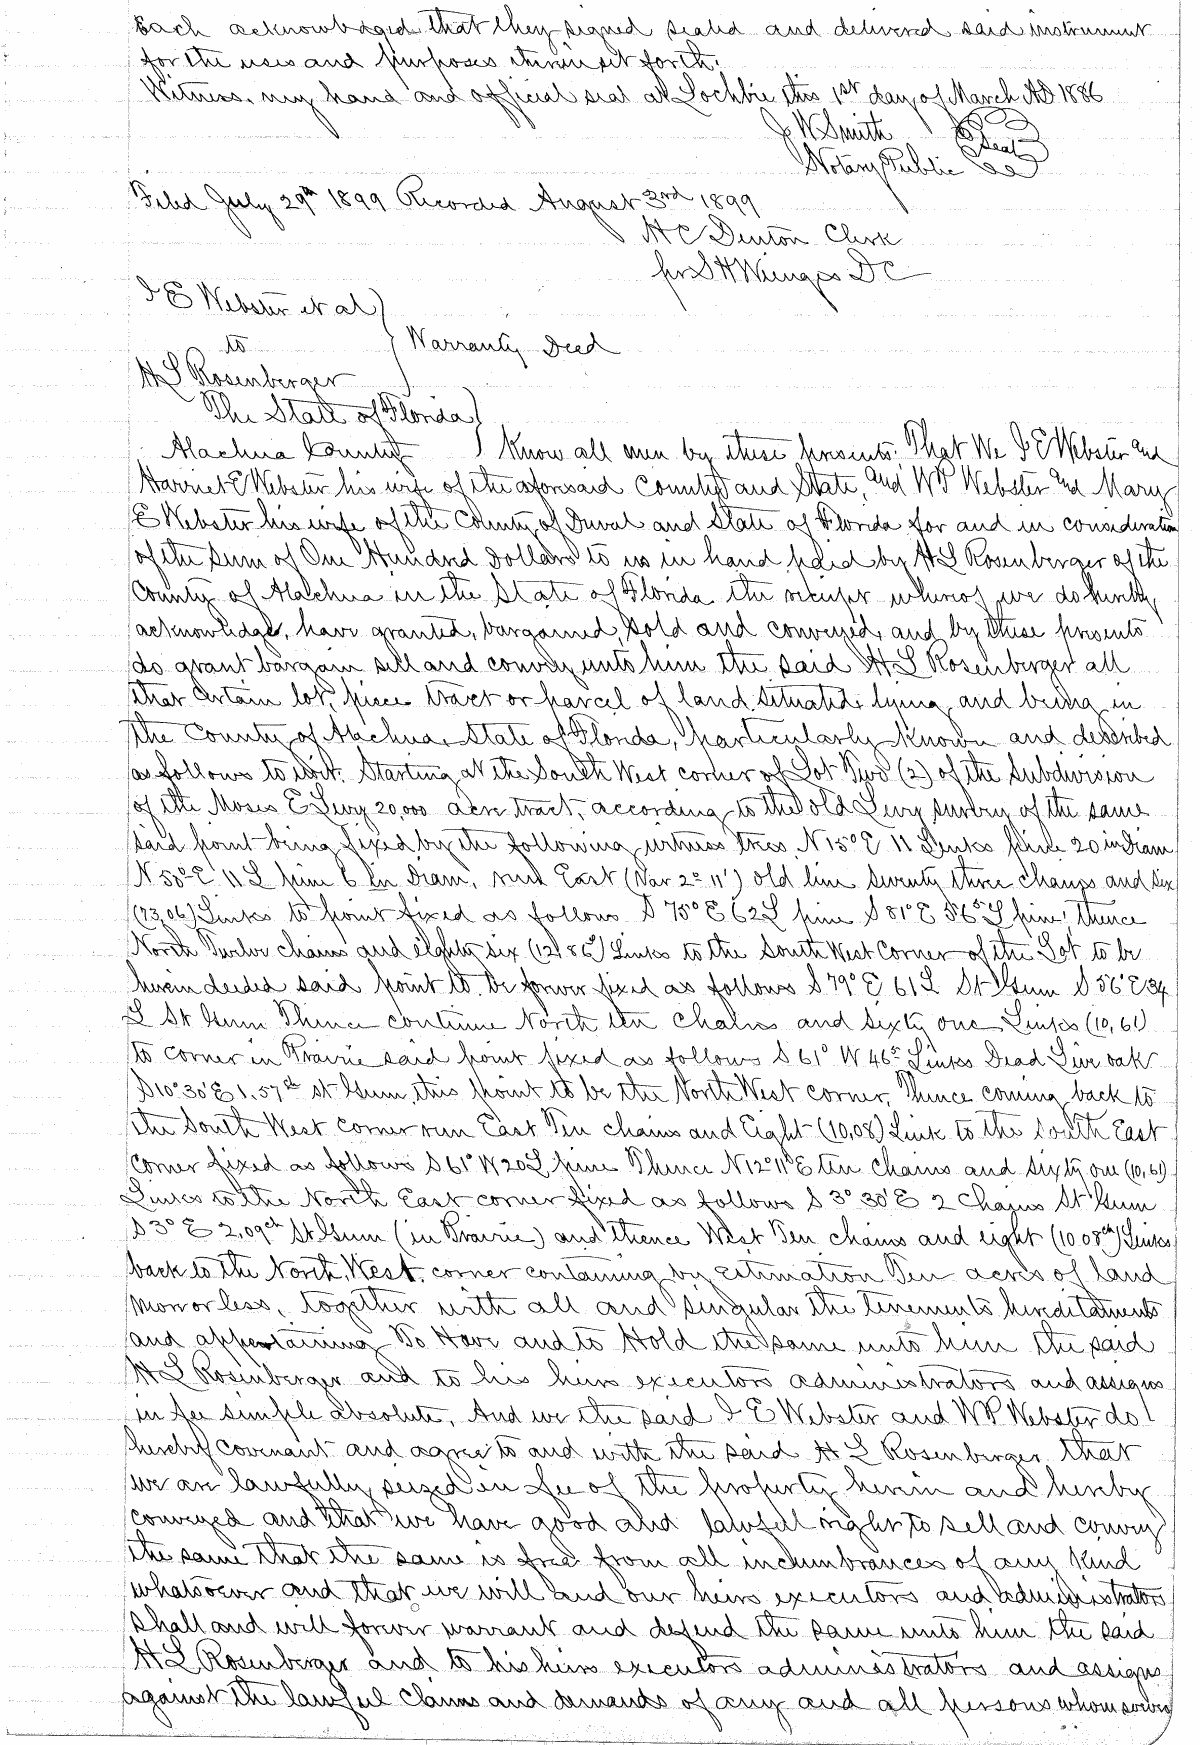 Each acknowledged that they signed sealed and delivered said instrument
for the uses and purposes therein set forth.
Witness, my hand and official seal at Lochbie this 1st day of March AD 1886
J W Smith Seal
Notary Public
Filed July 29th 1899 Recorded August 3rd 1899
H C Denton Clerk
per S H Wienges D C
I E Webster et al
to Warranty Deed
H L Rosenberger
The State of Florida
Alachua County Know all men by these presents: That We I E Webster and
Harriet E Webster his wife of the aforesaid County and State, and W P Webster and Mary
E Webster his wife of the County of Duval and State of Florida for and in consideration
of the sum of One Hundred Dollars to us in hand paid by H L Rosenberger of the
County of Alachua in the State of Florida the receipt whereof we do hereby
acknowledge, have granted, bargained, sold and conveyed, and by these presents
do grant bargain sell and convey unto him the said H L Rosenberger all
that certain lot, piece tract or parcel of land situated, lying and being in
the County of Alachua, State of Florida, particularly known and described
as follows to wit. Starting at the South West corner of Lot Two (2) of the subdivision
of the Moses E Levy 20,000 acre tract, according to the old Levy survey of the same
said point being fixed by the following witness trees, N 15° E 11 Links pine 20 in Diam
N 50° E 11 L pine 6 in Diam, run East (Var 2° 11') old line twenty three chains and six
(23,06) Links to point fixed as follows S 75° E 62 L pine S 81° E 56 L pine, thence
North Twelve chains and eighty six (12,86) Links to the South West Corner of the Lot to be
herein deeded said point to be forever fixed as follows S 79° E 61 L St Gum S 56° E 34
L St Gum Thence continue North ten chains and sixty one Links (10,61)
to corner in Prairie said point fixed as follows S 61° W 46 Links Dead Live oak
S 10° 30' E 1.57th st Gum, this point to be the North West corner, Thence coming back to
the South West corner run East Ten chains and Eight (10,08) Link to the South East
corner fixed as follows S 61° W 20 L pine Thence N 12° 11' E ten chains and sixty one (10,61)
Links to the North East corner fixed as follows S 3° 30' E 2 Chains St Gum
S 3° E 2,09th St Gum (in Prairie) and thence West Ten chains and eight (10 08th) Links
back to the North West corner containing by estimation Ten acres of land
more or less, together with all and singular the tenements hereditaments
and appertaining To Have and to Hold the same unto him the said
H L Rosenberger and to his heirs executors administrators and assigns
in fee simple absolute, And we the said I E Webster and W P Webster do
hereby covenant and agree to and with the said H L Rosenberger that
we are lawfully seized in fee of the property herein and hereby
conveyed and that we have good and lawful right to sell and convey
the same that the same is free from all incumbrances of any kind
whatsoever and that we will and our heirs executors and administrators
shall and will forever warrant and defend the same unto him the said
H L Rosenberger and to his heirs executors administrators and assigns
against the lawful claims and demands of any and all persons whomsoever